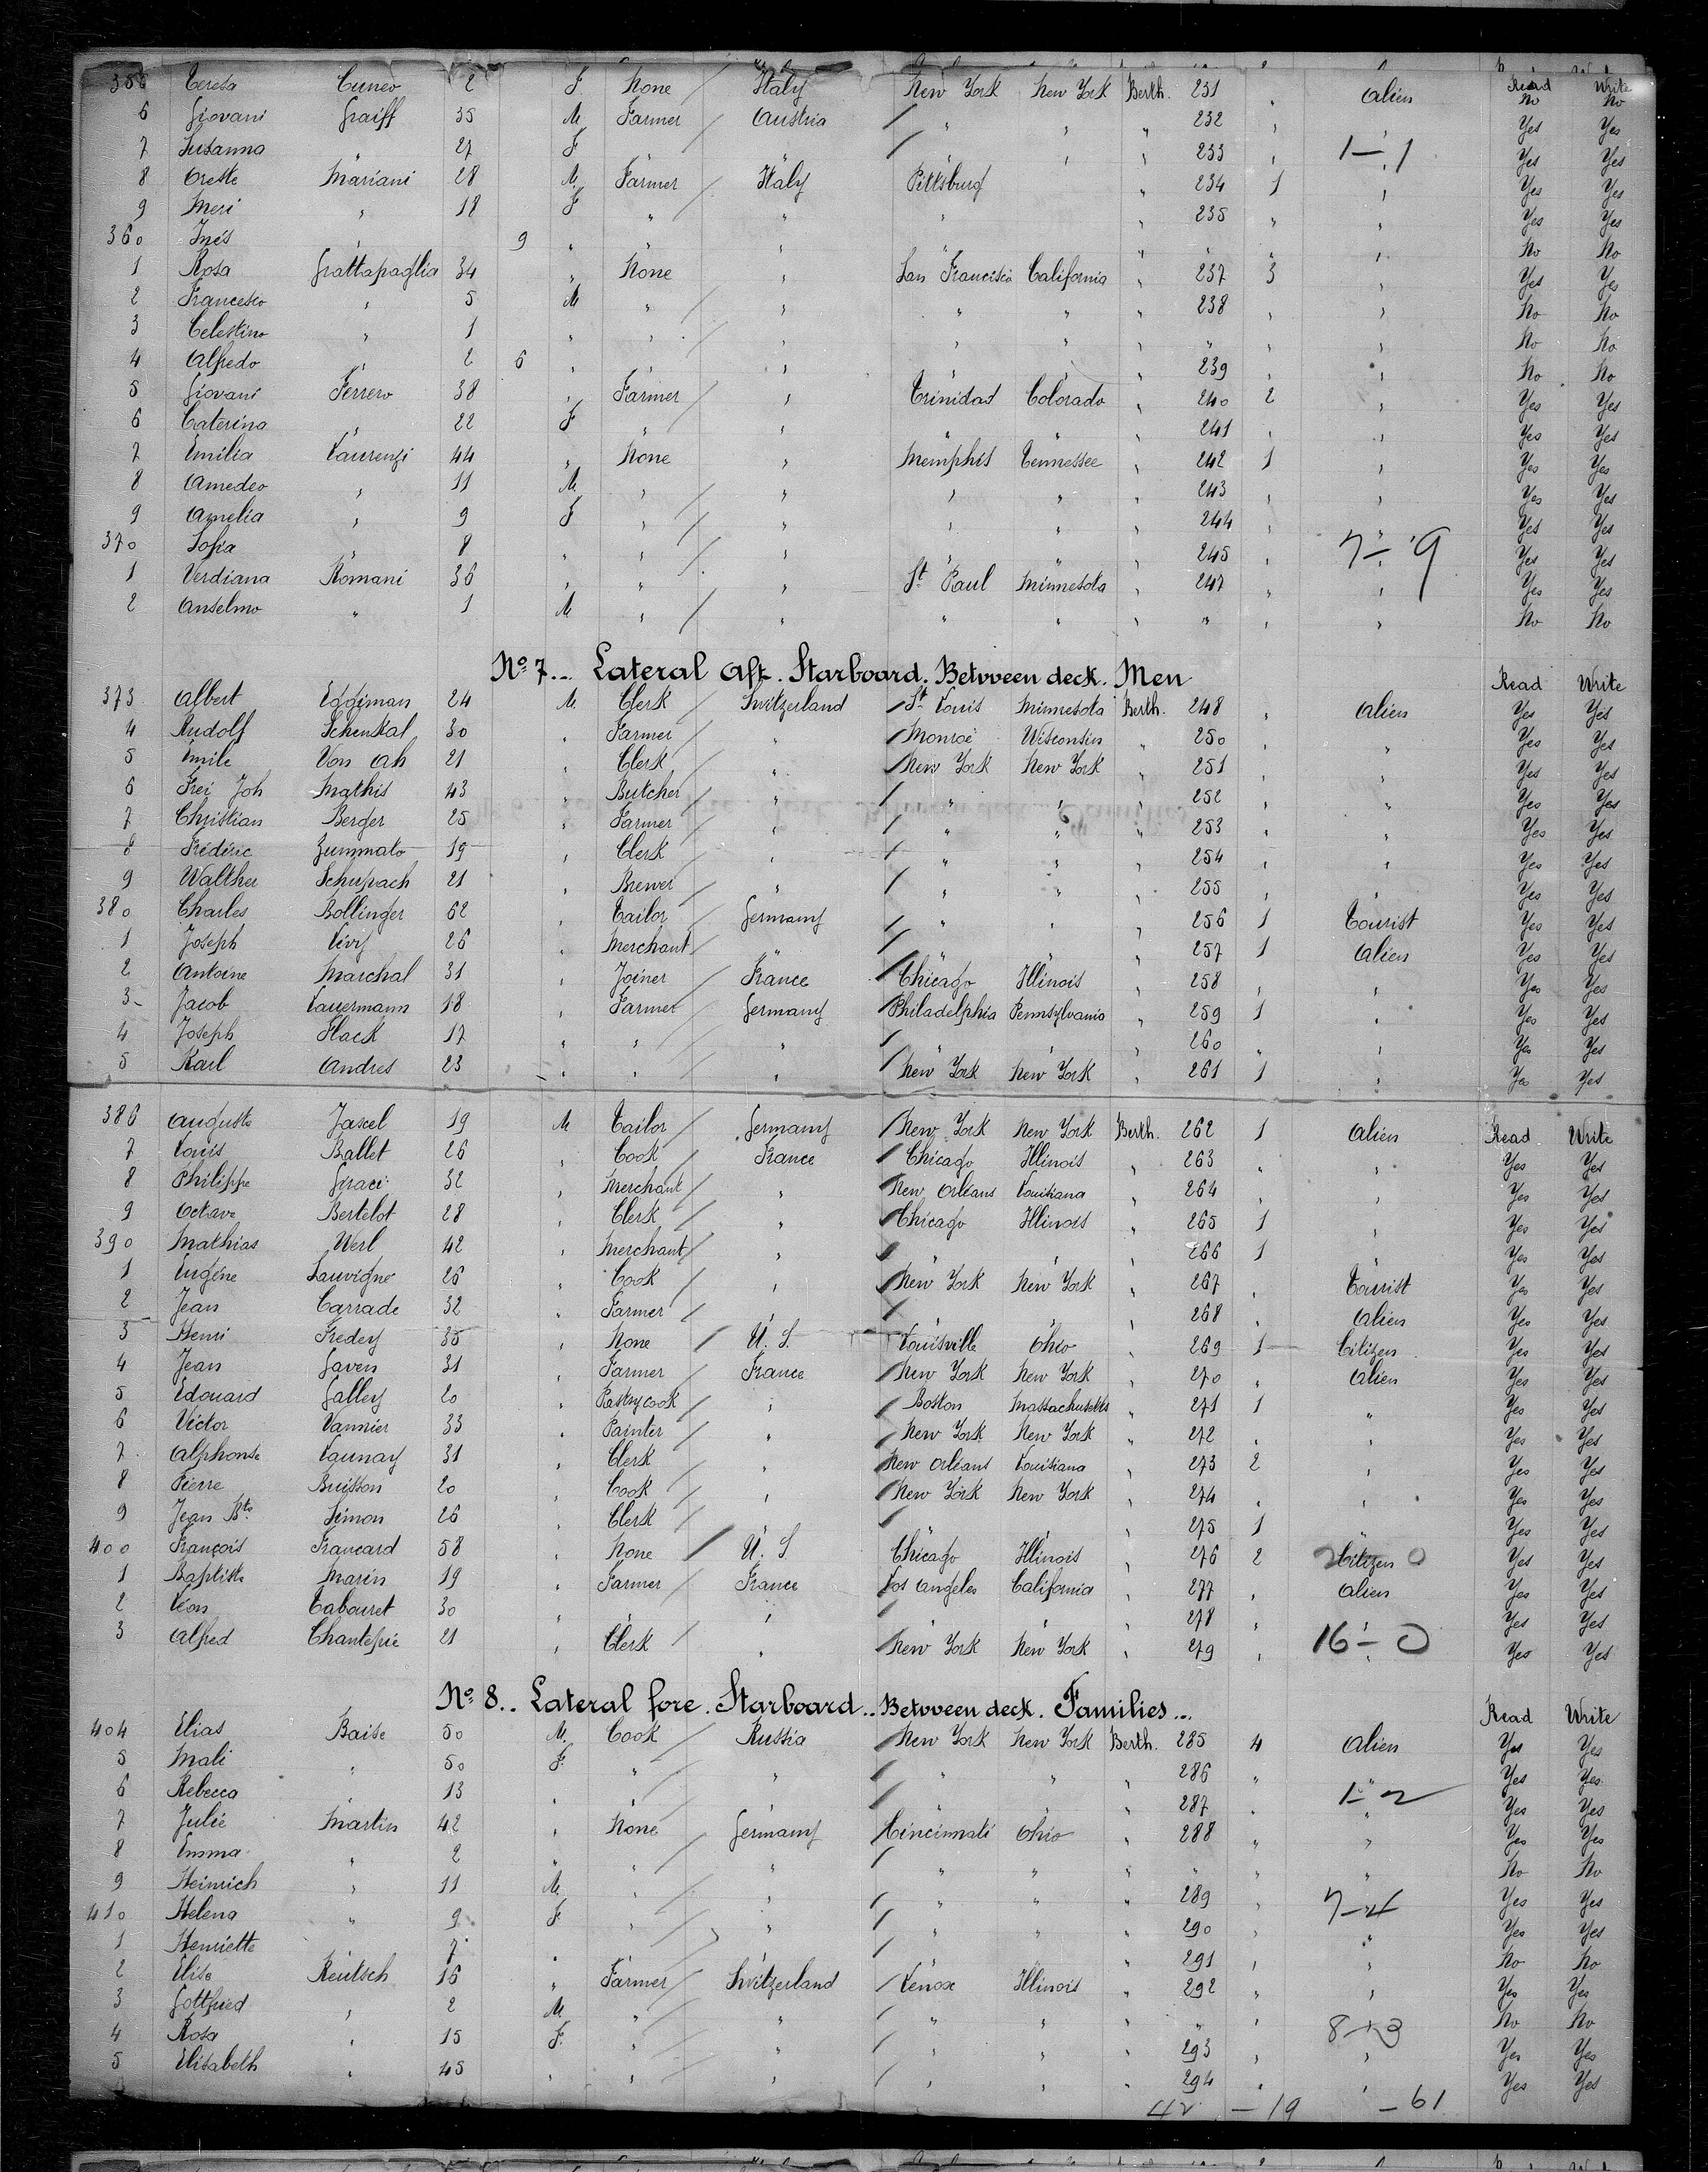 355 Teresa Cuneo 2 F None / Italy New York New York Berth. 231 " Alien Read No Write No
6 Giovani Graiff 35 M. Farmer / Austria / " " " 232 " " Yes Yes
7 Susanna " 27 F " / " / " " " 233 " 1–1 Yes Yes
8 Oreste Mariani 28 M. Farmer / Italy Pittsburg " 234 1 " Yes Yes
9 Meri " 18 F " / " " " 235 " " Yes Yes
360 Inés " 9 " " / " " " " " " No No
1 Rosa Grattapaglia 34 " None " San Francisco California " 237 3 " Yes Yes
2 Francesco " 5 M " / " " " " 238 " " No No
3 Celestino " 1 " " / " " " " " " " No No
4 Alfredo " 2 6 " " / " " " " 239 " " No No
5 Giovani Ferrero 38 " Farmer / " Trinidad Colorado " 240 2 " Yes Yes
6 Caterina " 22 F " / " " " " 241 " " Yes Yes
7 Emilia Laurenzi 44 " None " Memphis Tennessee " 242 1 " Yes Yes
8 Amedeo " 11 M. " / " " " " 243 " " Yes Yes
9 Amelia " 9 F " / " " " " 244 " " Yes Yes
370 Sofia " 8 " " / " " " " 245 " 7–9 Yes Yes
1 Verdiana Romani 36 " " " St Paul Minnesota " 247 " " Yes Yes
2 Anselmo " 1 M. " / " " " " " " " No No
No 7... Lateral Aft. Starboard. Betvveen deck. Men Read Write
373 Albert Eggiman 24 M. Clerk / Switzerland / St Louis Minnesota Berth. 248 " Alien Yes Yes
4 Rudolf Schenkal 30 " Farmer / " / Monroe Wisconsin " 250 " " Yes Yes
5 Emile Von Ah 21 " Clerk / " / New York New York " 251 " " Yes Yes
6 Frei Joh Mathis 43 " Butcher / " / " " " 252 " " Yes Yes
7 Christian Berger 25 " Farmer / " / " " " 253 " " Yes Yes
8 Frédéric Zummato 19 " Clerk / " / " " " 254 " " Yes Yes
9 Walther Schupach 21 " Brewer / " / " " " 255 " " Yes Yes
380 Charles Bollinger 62 " Tailor / Germany / " " " 256 1 Tourist Yes Yes
1 Joseph Livy 26 " Merchant / " / " " " 257 1 Alien Yes Yes
2 Antoine Marchal 31 " Joiner / France / Chicago Illinois " 258 " " Yes Yes
3 Jacob Lauermann 18 " Farmer / Germany / Philadelphia Pennsylvania " 259 1 " Yes Yes
4 Joseph Flack 17 " " / " / " " " 260 " " Yes Yes
5 Karl Andres 23 " " / " / New York New York " 261 1 " Yes Yes
386 Auguste Jascel 19 M Tailor / Germany / New York New York Berth. 262 1 Alien Read Write
7 Louis Ballet 26 " Cook / France / Chicago Illinois " 263 " " Yes Yes
8 Philippe Giraci 32 " Merchant / " / New Orléans Louisiana " 264 " " Yes Yes
9 Octave Bertelot 28 " Clerk / " / Chicago Illinois " 265 1 " Yes Yes
390 Mathias Werl 42 " Merchant / " / " " " 266 1 " Yes Yes
1 Eugéne Sauvigne 26 " Cook / " / New York New York " 267 " Tourist Yes Yes
2 Jean Carrade 32 " Farmer / " / " " " 268 " Alien Yes Yes
3 Henri Fredey 35 " None / U. S. Louisville Ohio " 269 1 Citizen Yes Yes
4 Jean Gaven 31 " Farmer / France / New York New York " 270 " Alien Yes Yes
5 Edouard Galley 20 " Pastrycook " / Boston Massachusetts " 271 1 " Yes Yes
6 Victor Vannier 33 " Painter / " / New York New York " 272 " " Yes Yes
7 Alphonse Launay 31 " Clerk / " / New Orléans Louisiana " 273 2 " Yes Yes
8 Pierre Buisson 20 " Cook / " / New York New York " 274 " " Yes Yes
9 Jean Bte Simon 26 " Clerk / " / " " " 275 1 " Yes Yes
400 François Francard 58 " None / U. S Chicago Illinois " 276 2 Citizen Yes Yes
1 Baptiste Marin 19 " Farmer / France / Los Angeles California " 277 " Alien Yes Yes
2 Léon Tabouret 30 " " / " / " " " 278 " " Yes Yes
3 Alfred Chantepie 21 " Clerk / " / New York New York " 279 " 16–0 Yes Yes
No 8.. Lateral fore. Starboard.. Betvveen deck. Families... Read Write
404 Elias Baise 50 M. Cook / Russia / New York New York Berth. 285 4 Alien Yes Yes
5 Mali " 50 F. " / " / " " " 286 " " Yes Yes
6 Rebecca " 13 " " / " / " " " 287 " 1–2 Yes Yes
7 Julie Martin 42 " None / Germany / Cincinnati Ohio " 288 " " Yes Yes
8 Emma " 2 " " / " / " " " " " " No No
9 Heinrich " 11 M. " / " / " " " 289 " " Yes Yes
410 Helena " 9 F. " / " / " " " 290 " 7–4 Yes Yes
1 Henriette " 7 " " / " / " " " 291 " " No No
2 Elise Reutsch 16 " Farmer / Switzerland / Lénox Illinois " 292 " " Yes Yes
3 Gottfried " 2 M. " / " / " " " " " " No No
4 Rosa " 15 F. " / " / " " " 293 " 8–3 Yes Yes
5 Elisabeth " 45 " " / " / " " " 294 " " Yes Yes
42 – 19 – 61